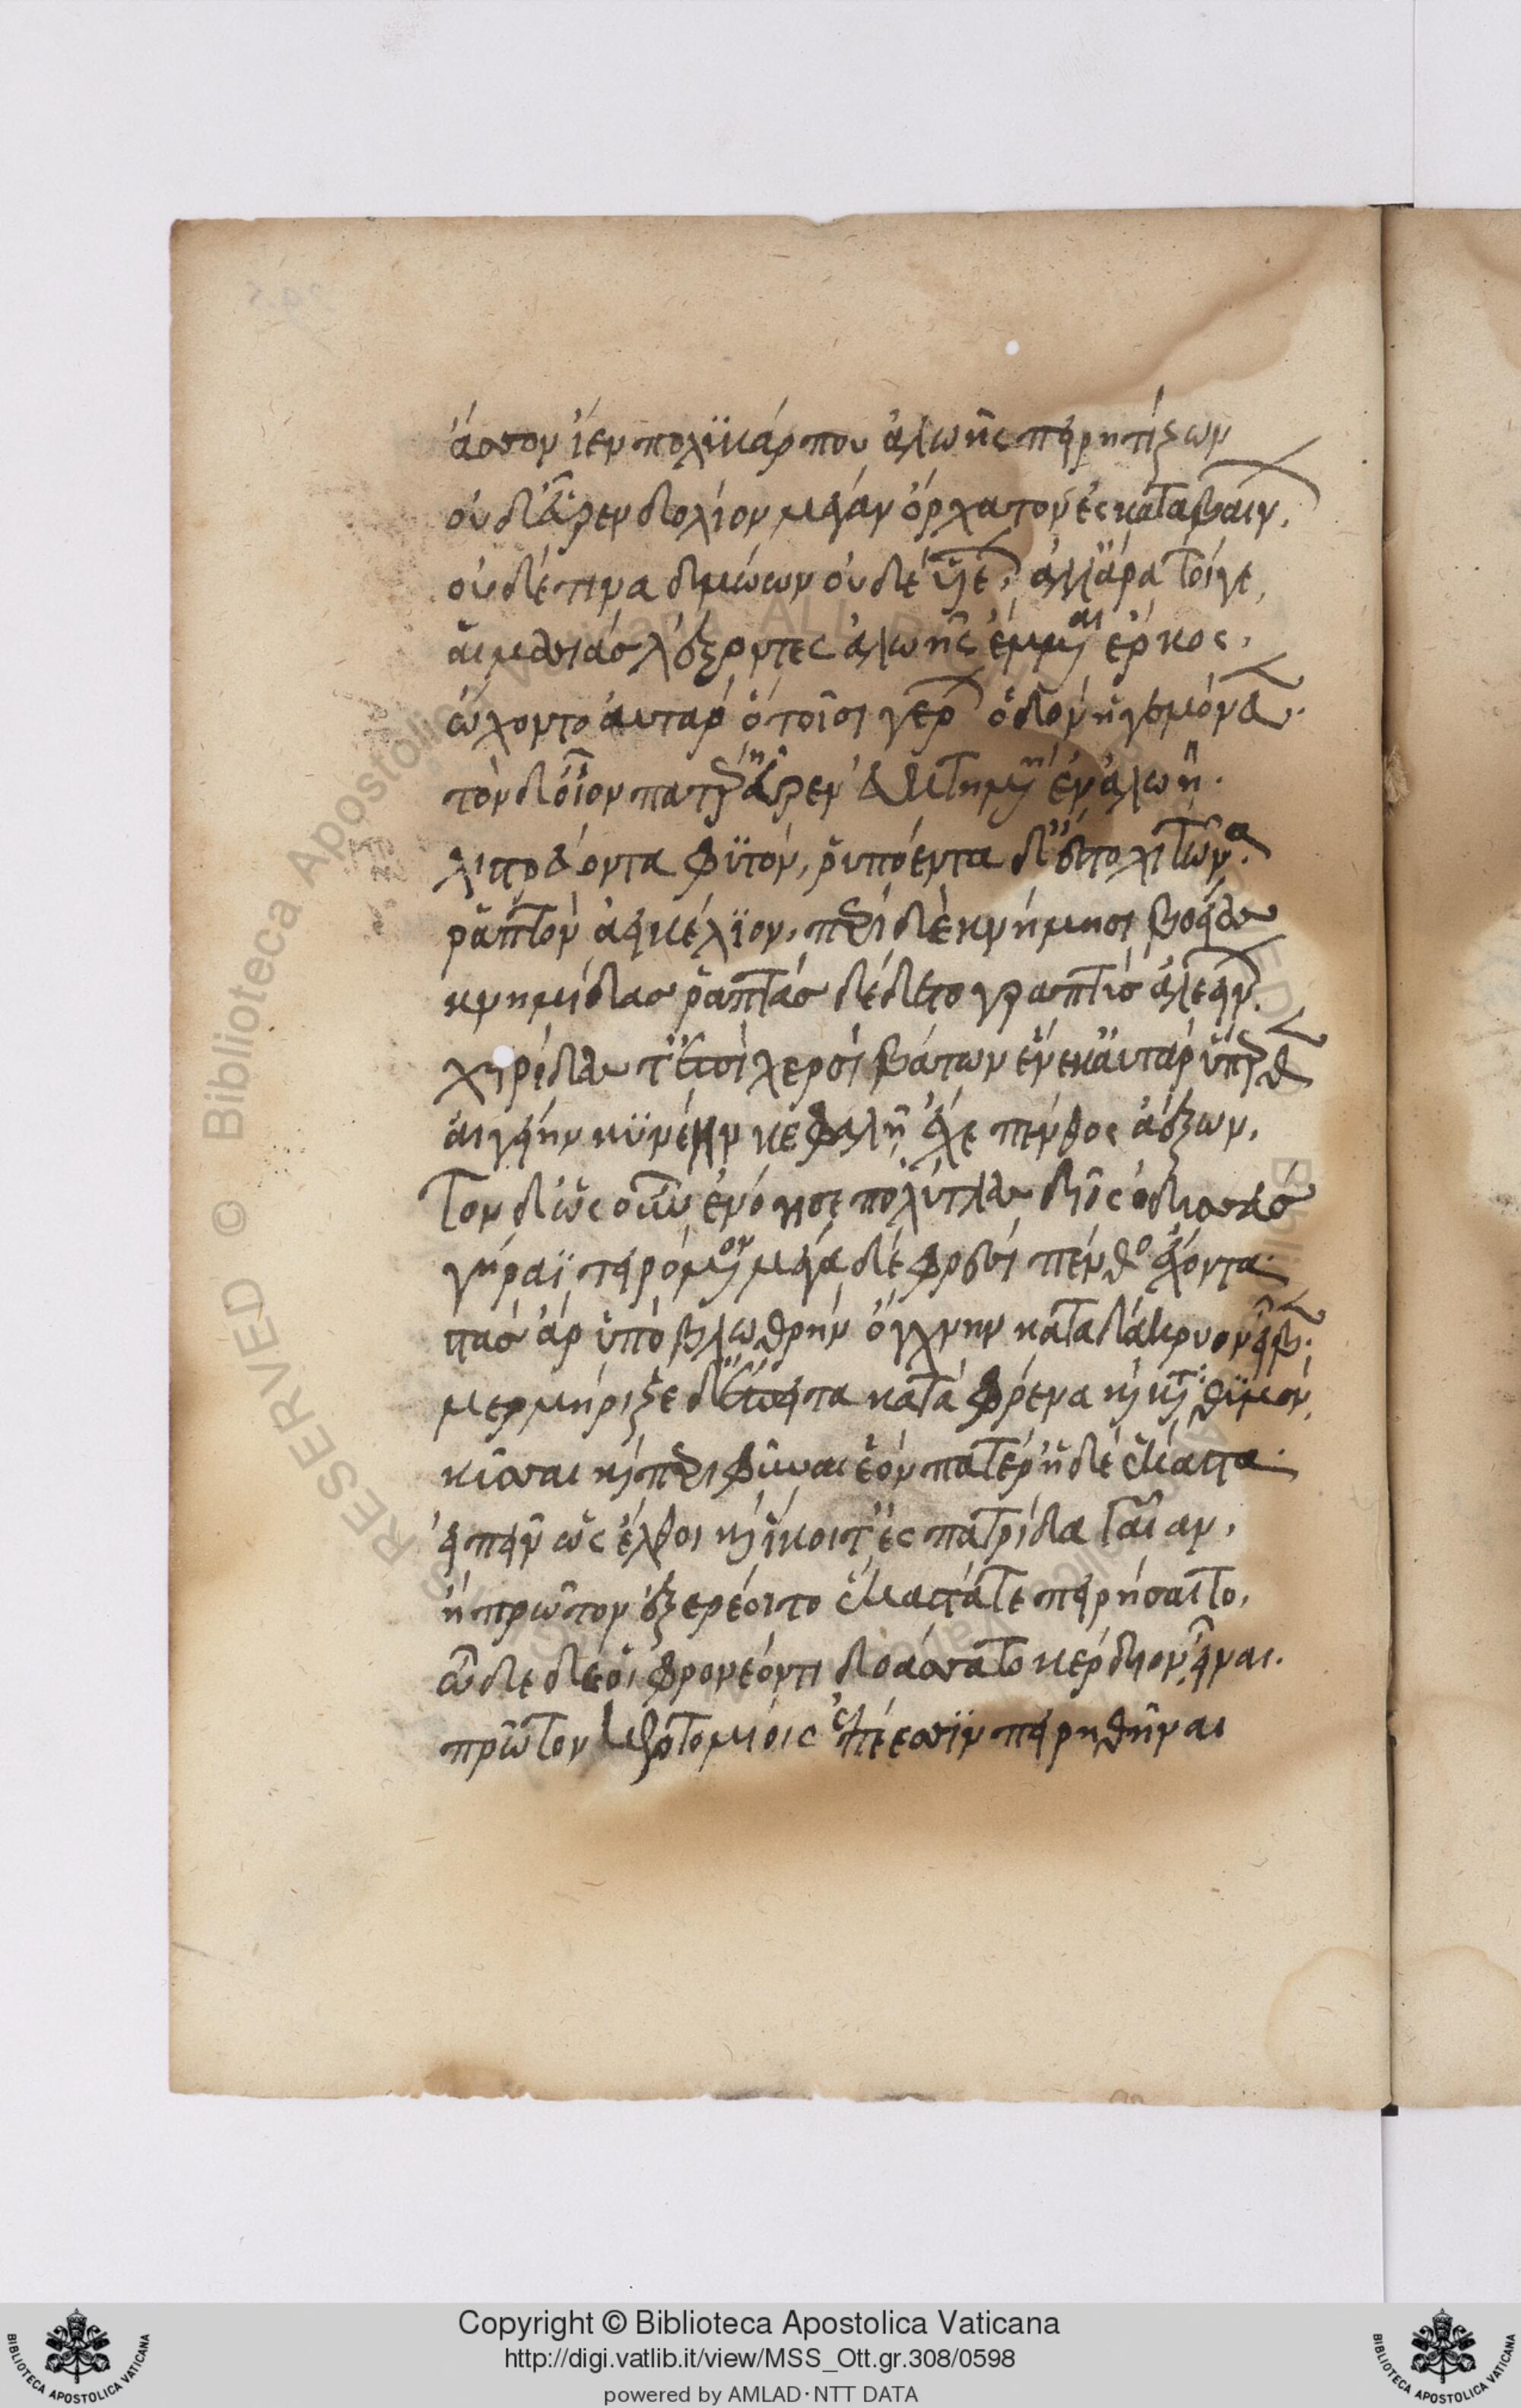 ἆσσον ἴεν πολϋκάρπου ἀλωῆς πειρητίζων
οὐδ' εὗρεν δολίον μέγαν ὄρχατον ἐς καταβαίνων.
οὐδέ τινα δμώων οὐδὲ υἷας, ἀλλ' ἄρα τοίγε,
αἱμασιὰς λέξοντες ἀλωῆς ἔμμεναι ἕρκος.
ὤχοντο αὐτὰρ ὁ τοῖσι γέρων ὁδὸν ἡγεμόνευε.
τὸν δ' οἶον πατέρ' εὗρεν ἐϋκτιμένη ἐν ἀλωῆ.
λιστρεύοντα φϋτόν, ῥυπόεντα δ' ἕστο χιτῶνα.
ῥαπτὸν ἀεικέλϊον, περὶ δὲ κνήμησι βοείας
κνημίδας ῥαπτὰς δέδετο γραπτῦς ἀλεείνων.
χειρίδας τ' ἐπὶ χερσὶ βάτων ἕνεκ' αὐτὰρ ὕπερθεν
αἰγείην κϋνέην κεφαλῆ ἔχε πένθος ἀέξων.
Τὸν δ' ὡς οὖν ἐνόησε πολύτλας δῖος ὀδυσσεὺς
γήραϊ τειρόμενον μέγα δὲ φρεσὶ πένθος ἔχοντα.
στὰς ἄρ ὑπὸ βλωθρὴν ὄγχνην κατὰ δάκρυον εἶβε.
μερμήριξε δ' ἔπειτα κατὰ φρένα καὶ κατὰ θϋμόν,
κύσσαι καὶ περιφῦναι ἑὸν πατέρ' ἠδὲ ἕκαστα.
εἰπεῖν ὡς ἔλθοι καὶ ἵκοιτ' ἐς πατρίδα γαῖαν.
ἢ πρῶτον ἐξερέοιτο ἕκαστά τε πειρήσαιτο.
ὧδε δέ οἱ φρονέοντι δοάσσατο κέρδιον εἶναι.
πρῶτον κερτομίοις ἐπέεσσϊν πειρηθῆναι
Copyright © Biblioteca Apostolica Vaticana
http://digi.vatlib.it/view/MSS_Ott.gr.308/0598
powered by AMLAD·NTT DATA